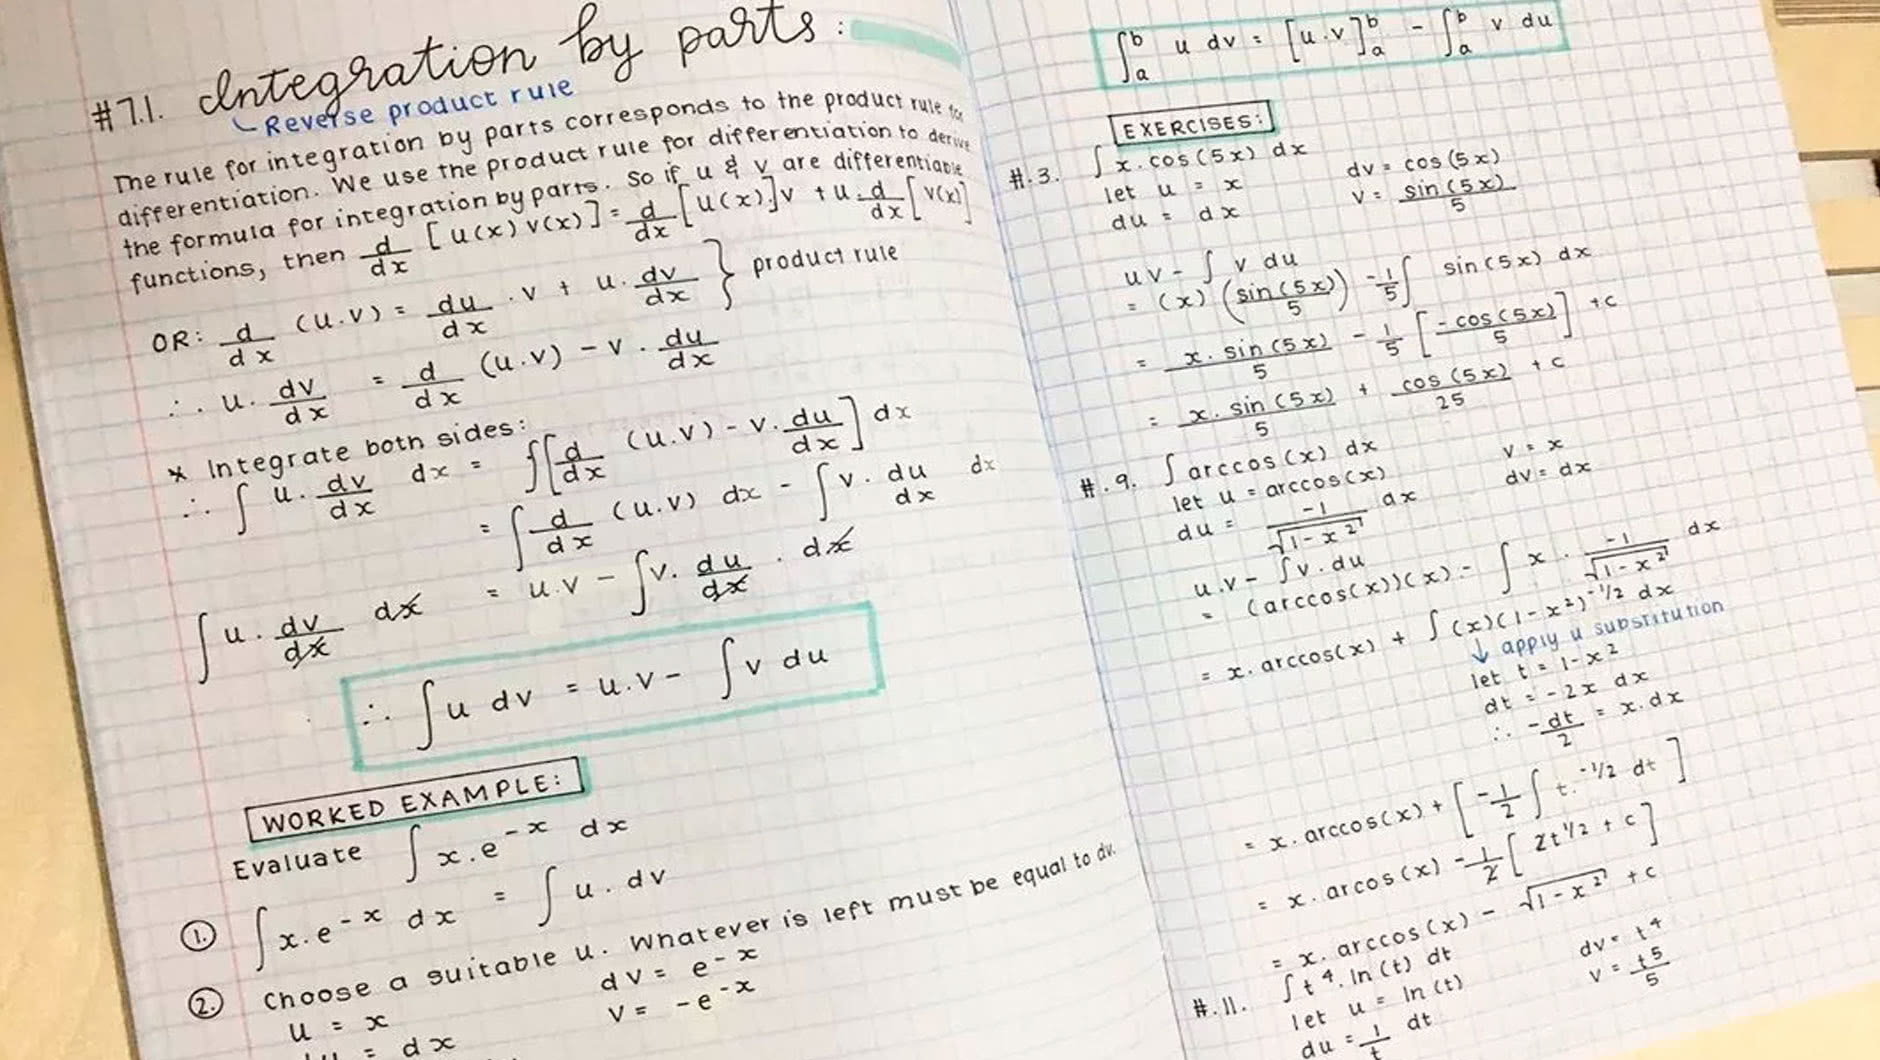 #7.1. Integration by parts:
Reverse product rule
The rule for integration by parts corresponds to the product rule for
differentiation. We use the product rule for differentiation to derive
the formula for integration by parts. So if u & v are differentiable
functions, then d/dx [u(x) v(x)] = d/dx [u(x).]v + u.d/dx [v(x)]
OR: d/dx (u.v) = du/dx . v + u. dv/dx } product rule
∴ u. dv/dx = d/dx (u.v) - v. du/dx
* Integrate both sides:
∴ ∫ u. dv/dx dx = ∫[d/dx (u.v) - v. du/dx] dx
= ∫ d/dx (u.v) dx - ∫ v. du/dx dx
∫ u. dv/dx dx = u.v - ∫ v. du/dx . dx
∴ ∫ u dv = u.v - ∫ v du
WORKED EXAMPLE:
Evaluate ∫ x.e^-x dx
1. ∫ x.e^-x dx = ∫ u.dv
2. Choose a suitable u. Whatever is left must be equal to dv.
u = x dv = e^-x
= dx v = -e^-x
∫_a^b u dv = [u.v]_a^b - ∫_a^b v du
EXERCISES:
#.3. ∫ x.cos(5x) dx
let u = x dv = cos(5x)
du = dx v = sin(5x)/5
uv - ∫ v du
= (x)(sin(5x)/5) - 1/5 ∫ sin(5x) dx
= x.sin(5x)/5 - 1/5 [-cos(5x)/5] + c
= x.sin(5x)/5 + cos(5x)/25 + c
#.9. ∫ arccos(x) dx v = x
let u = arccos(x) dv = dx
du = -1/√(1-x²) dx
u.v - ∫ v.du
= (arccos(x))(x) - ∫ x . -1/√(1-x²) dx
= x.arccos(x) + ∫ (x)(1-x²)^-1/2 dx
↓ apply u substitution
let t = 1-x²
dt = -2x dx
∴ -dt/2 = x.dx
= x.arccos(x) + [-1/2 ∫ t.^-1/2 dt]
= x.arcos(x) - 1/2 [2t^1/2 + c]
= x.arccos(x) - √(1-x²) + c
#.11. ∫ t^4.ln(t) dt dv = t^4
let u = ln(t) v = t^5/5
du = 1/t dt